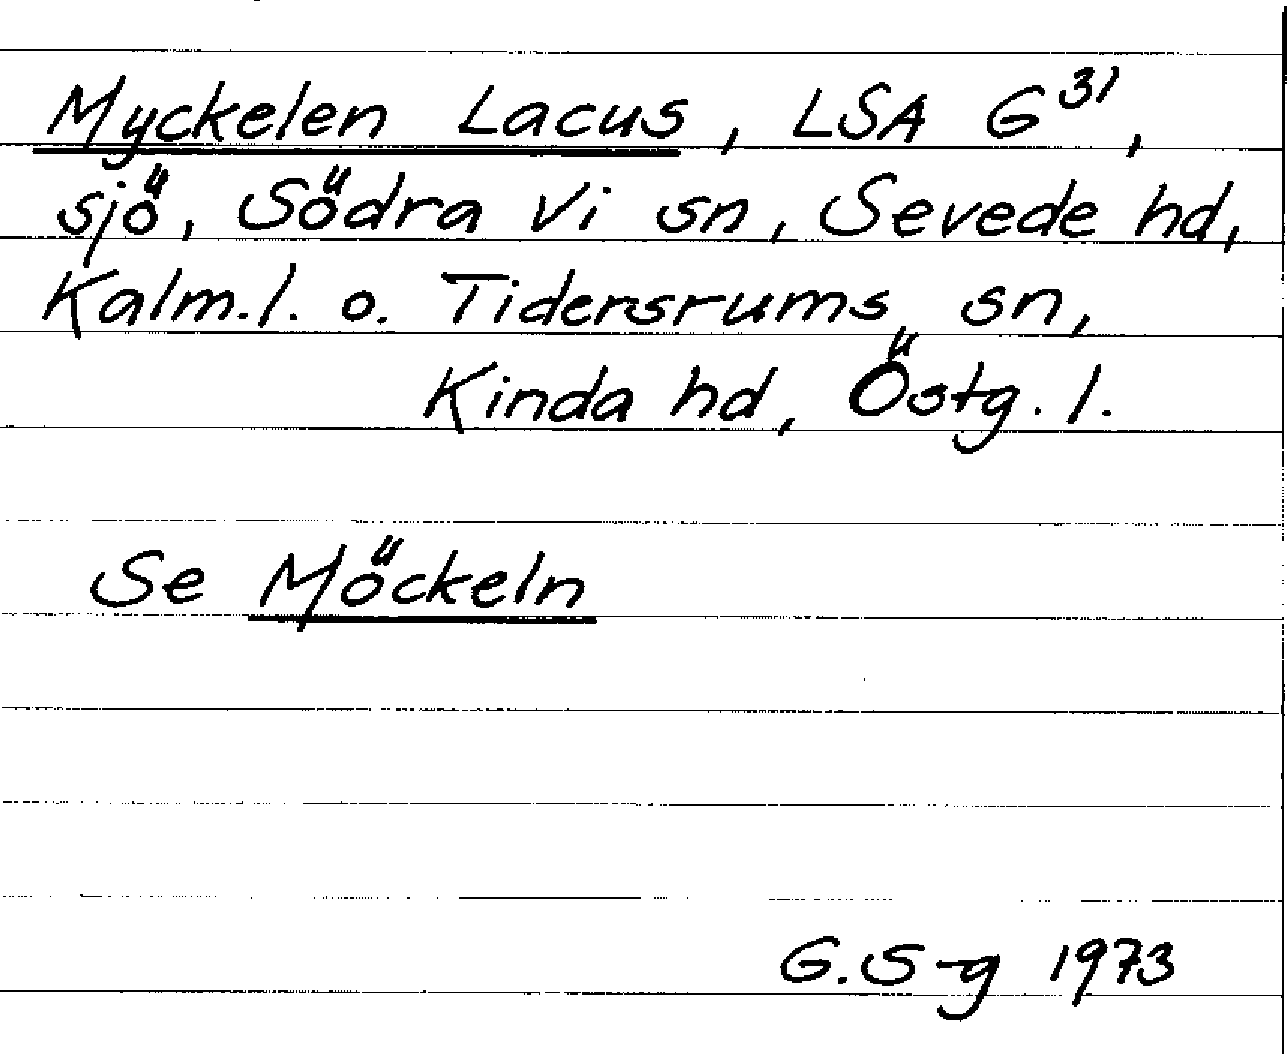 Myckelen Lacus, LSA G³¹,
sjö, Södra Vi sn, Sevede hd,
Kalm.l. o. Tidersrums sn,
Kinda hd, Östg.l.
Se Möckeln
G.S-g 1973